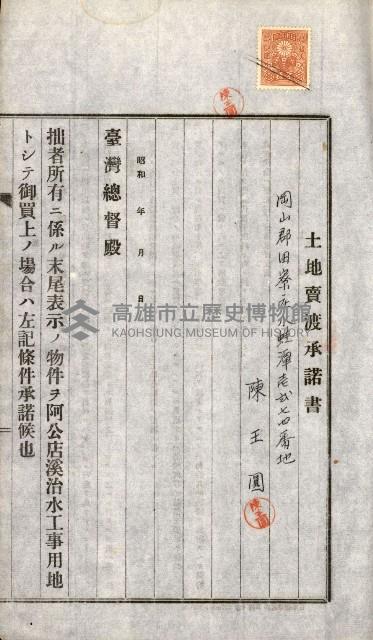 土地賣渡承諾書
岡山郡田寮庄水蛙潭壱弍七四番地
陳王圓
昭和 年 月 日
臺灣總督殿
拙者所有ニ係ル末尾表示ノ物件ヲ阿公店溪治水工事用地
トシテ御買上ノ場合ハ左記條件承諾候也
高雄市立歷史博物館
KAOHSIUNG MUSEUM OF HISTORY